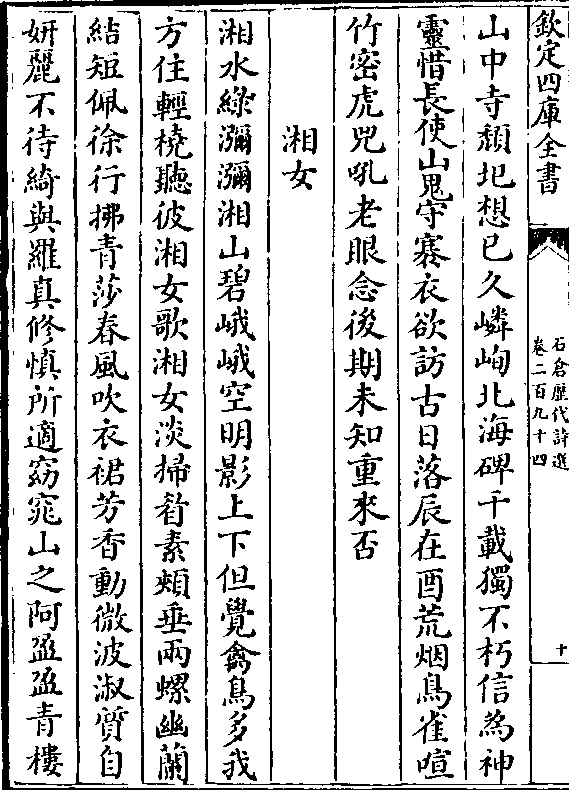 欽定四庫全書
石倉歴代詩選
卷二百九十四
十
山中寺頽圯想已久嶙峋北海碑千載獨不朽信為神
靈惜長使山鬼守搴衣欲訪古日落辰在酉荒烟鳥雀喧
竹密虎兕吼老眼念後期未知重來否
湘女
湘水綠瀰瀰湘山碧峨峨空明影上下但覺禽鳥多我
方住輕橈聽彼湘女歌湘女淡掃眉素頰垂兩螺幽蘭
結短佩徐行拂青莎春風吹衣裙芳香動微波淑質自
妍麗不待綺與羅真修慎所適窈窕山之阿盈盈青樓